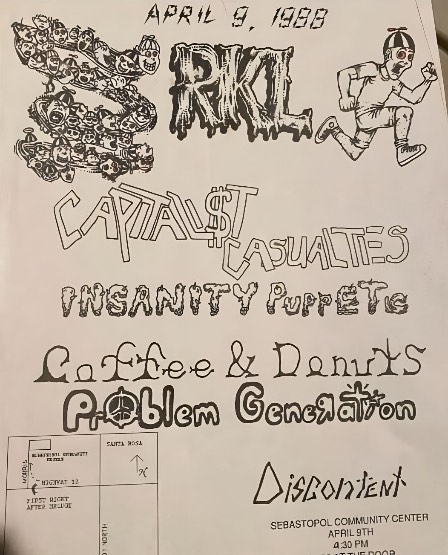 APRIL 9, 1988
RKL
CAPITALI$T
CASUALTIES
INSANITY PUPPETS
Coffee & Donuts
PrOblem Generation
SANTA ROSA
N
MORRIS
HIGHWAY 12
FIRST RIGHT
AFTER BRIDGE
NORTH
DisContent
SEBASTOPOL COMMUNITY CENTER
APRIL 9TH
4:30 PM
AT THE DOOR